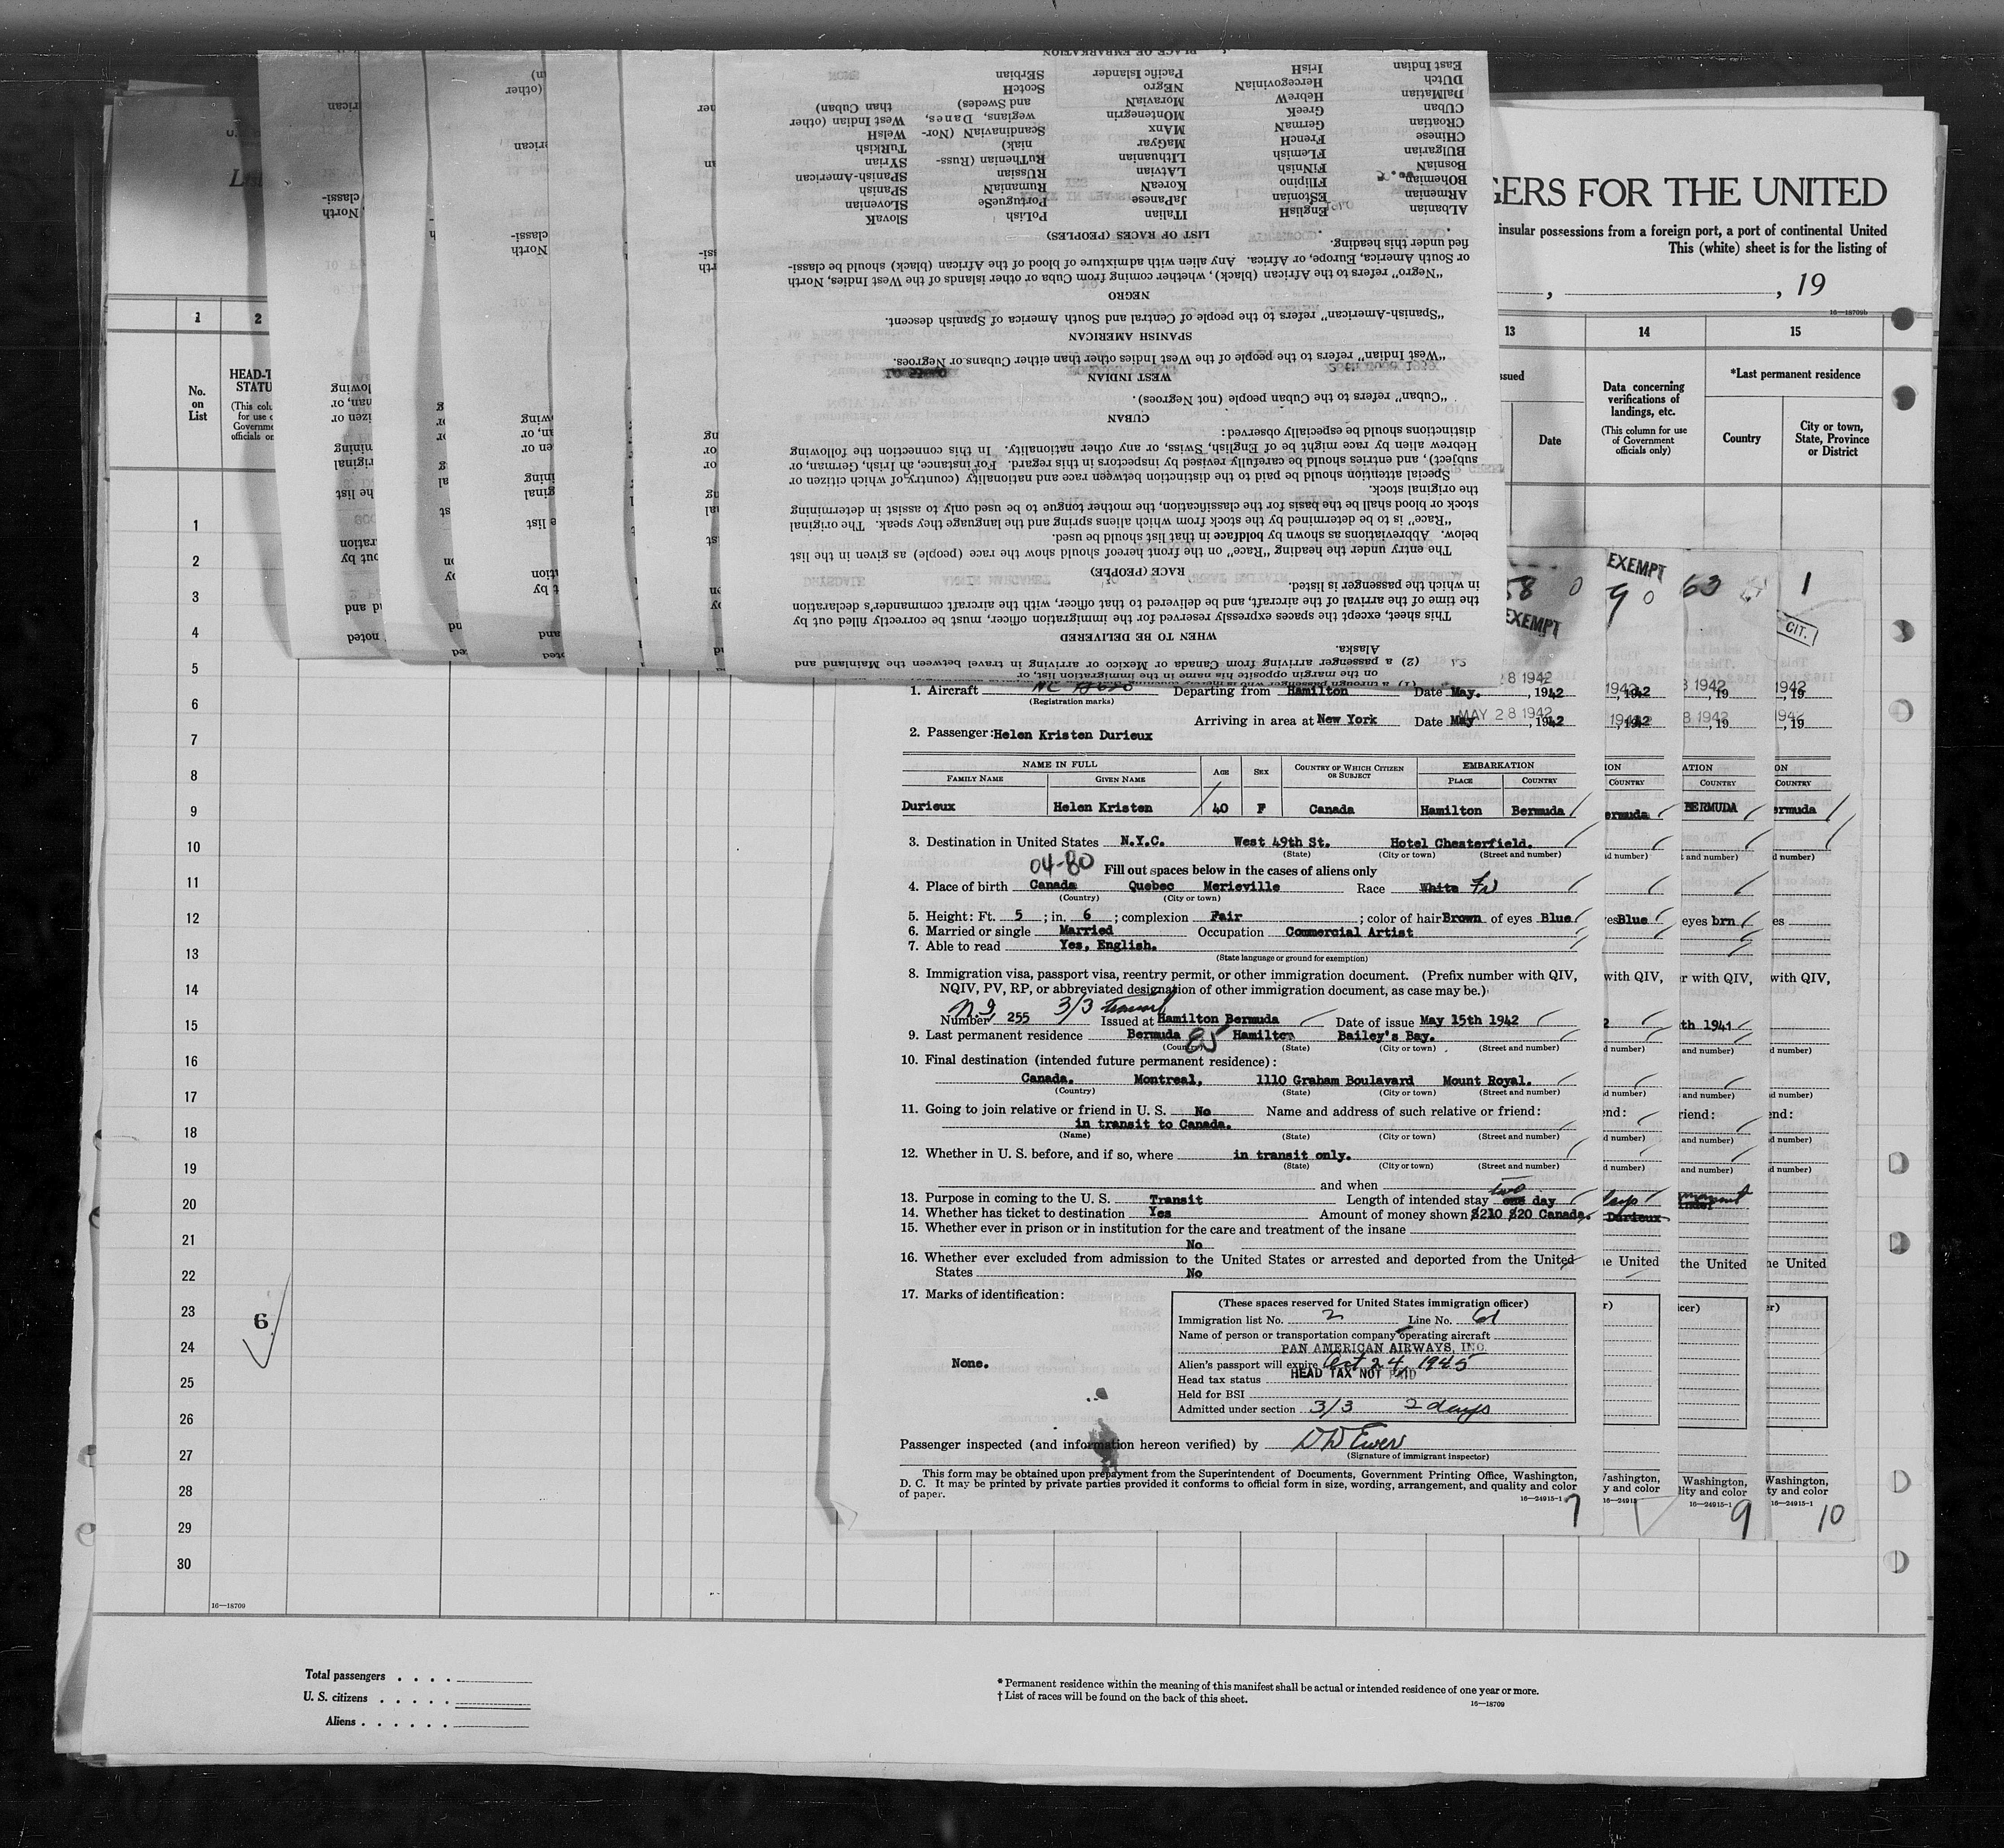 GERS FOR THE UNITED
insular possessions from a foreign port, a port of continental United
This (white) sheet is for the listing of
, , 19
16—18709b
1 2 13 14 15
No. on List
HEAD-T
STATU
(This colu
for use o
Governme
officials on
ssued
Date
Data concerning verifications of landings, etc.
(This column for use of Government officials only)
*Last permanent residence
Country
City or town, State, Province or District
PLACE OF EMBARKATION
East Indian IrisH Pacific Islander SErbian
DUtch HercegovinaN NEgro ScotcH
DalMatian HebreW MoraviaN and Swedes) than Cuban)
CUban GreeK MOntenegrin wegians, Danes, West Indian (other
CRoatian GermaN MAnx ScandinaviaN (Nor- WelsH
CHinese FrencH MaGyar niak) TuRkish
BUlgarian FLemish LIthuanian RuThenian (Russ- SYrian
BosniaN FiNish LAtvian RUssian SPanish-American
BOhemian FIlipino KoreaN RumaniaN SPanish
ARmenian EStonian JaPanese PortugueSe SLovenian
ALbanian EnglisH ITalian PoLisH SlovaK
LIST OF RACES (PEOPLES)
fied under this heading.
or South America, Europe, or Africa. Any alien with admixture of blood of the African (black) should be classi-
"Negro" refers to the African (black), whether coming from Cuba or other islands of the West Indies, North
NEGRO
"Spanish-American" refers to the people of Central and South America of Spanish descent.
SPANISH AMERICAN
"West Indian" refers to the people of the West Indies other than either Cubans or Negroes.
WEST INDIAN
"Cuban" refers to the Cuban people (not Negroes).
CUBAN
distinctions should be especially observed:
Hebrew alien by race might be of English, Swiss, or any other nationality. In this connection the following
subject), and entries should be carefully revised by inspectors in this regard. For instance, an Irish, German, or
Special attention should be paid to the distinction between race and nationality (country of which citizen or
the original stock.
stock or blood shall be the basis for the classification, the mother tongue to be used only to assist in determining
"Race" is to be determined by the stock from which aliens spring and the language they speak. The original
below. Abbreviations as shown by boldface in that list should be used.
The entry under the heading "Race" on the front hereof should show the race (people) as given in the list
RACE (PEOPLE)
in which the passenger is listed.
the time of the arrival of the aircraft, and be delivered to that officer, with the aircraft commander's declaration
This sheet, except the spaces expressly reserved for the immigration officer, must be correctly filled out by
WHEN TO BE DELIVERED
Alaska.
(2) a passenger arriving from Canada or Mexico or arriving in travel between the Mainland and
on the margin opposite his name in the immigration list, or
58 0 EXEMPT
EXEMPT 90 63 1
CIT.
1. Aircraft Departing from Hamilton Date May. 28 1942, 1942
(Registration marks)
Arriving in area at New York Date May MAY 28 1942, 1942
2. Passenger: Helen Kristen Durieux
NAME IN FULL AGE SEX COUNTRY OF WHICH CITIZEN OR SUBJECT EMBARKATION
FAMILY NAME GIVEN NAME PLACE COUNTRY
Durieux Helen Kristen 40 F Canada Hamilton Bermuda
3. Destination in United States N.Y.C. West 49th St. Hotel Chesterfield.
(State) (City or town) (Street and number)
04-80 Fill out spaces below in the cases of aliens only
4. Place of birth Canada Quebec Merieville Race White Fr
(Country) (City or town)
5. Height: Ft. 5 ; in. 6 ; complexion Fair ; color of hair Brown of eyes Blue
6. Married or single Married Occupation Commercial Artist
7. Able to read Yes, English.
(State language or ground for exemption)
8. Immigration visa, passport visa, reentry permit, or other immigration document. (Prefix number with QIV,
NQIV, PV, RP, or abbreviated designation of other immigration document, as case may be.)
3/3 transit
Number 255 Issued at Hamilton Bermuda Date of issue May 15th 1942
9. Last permanent residence Bermuda 85 Hamilton Bailey's Bay.
(Country) (State) (City or town) (Street and number)
10. Final destination (intended future permanent residence):
Canada. Montreal, 1110 Graham Boulavard Mount Royal.
(Country) (State) (City or town) (Street and number)
11. Going to join relative or friend in U. S. No Name and address of such relative or friend:
in transit to Canada.
(Name) (State) (City or town) (Street and number)
12. Whether in U. S. before, and if so, where in transit only.
(State) (City or town) (Street and number)
and when
13. Purpose in coming to the U. S. Transit Length of intended stay two one day
14. Whether has ticket to destination Yes Amount of money shown $210 $20 Canada.
15. Whether ever in prison or in institution for the care and treatment of the insane
No
16. Whether ever excluded from admission to the United States or arrested and deported from the United
States No
17. Marks of identification:
None.
(These spaces reserved for United States immigration officer)
Immigration list No. 2 Line No.
Name of person or transportation company operating aircraft
PAN AMERICAN AIRWAYS, INC.
Alien's passport will expire Oct 24, 1945
Head tax status HEAD TAX NOT PAID
Held for BSI
Admitted under section 3/3 2 days
Passenger inspected (and information hereon verified) by
(Signature of immigrant inspector)
This form may be obtained upon prepayment from the Superintendent of Documents, Government Printing Office, Washington,
D. C. It may be printed by private parties provided it conforms to official form in size, wording, arrangement, and quality and color
of paper.
16—24915-1 7
9
10
1
2
3
4
5
6
7
8
9
10
11
12
13
14
15
16
17
18
19
20
21
22
23
24
25
26
27
28
29
30
6
16—18709
Total passengers . . . .
U. S. citizens . . . . .
Aliens . . . . . .
* Permanent residence within the meaning of this manifest shall be actual or intended residence of one year or more.
† List of races will be found on the back of this sheet.
16—18709